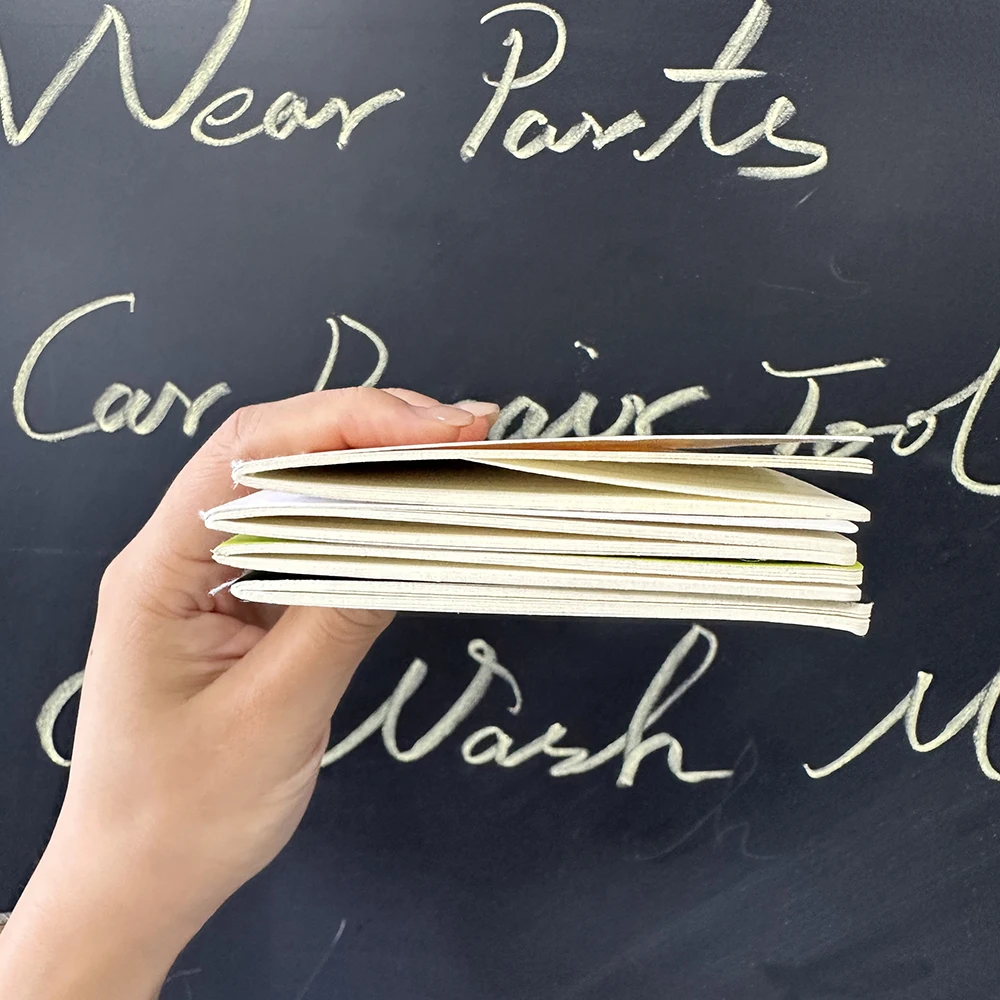 Wear Parts
Car Repair Tool
Wash M